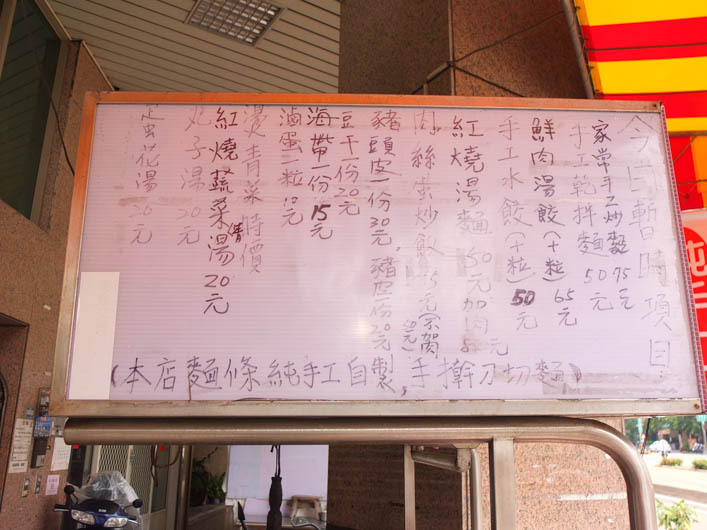 今日暫時項目
家常手工炒麵75元
手工乾拌麵50元
鮮肉湯餃(十粒)65元
手工水餃(十粒)50元
紅燒湯麵50元加肉
肉絲蛋炒飯
豬頭皮一份30元,豬皮一份20元
豆干一份20元
海帶一份15元
滷蛋一粒10元
燙青菜時價
紅燒蔬菜湯20元
丸子湯20元
蛋花湯20元
(本店麵條純手工自製,手擀刀切麵)